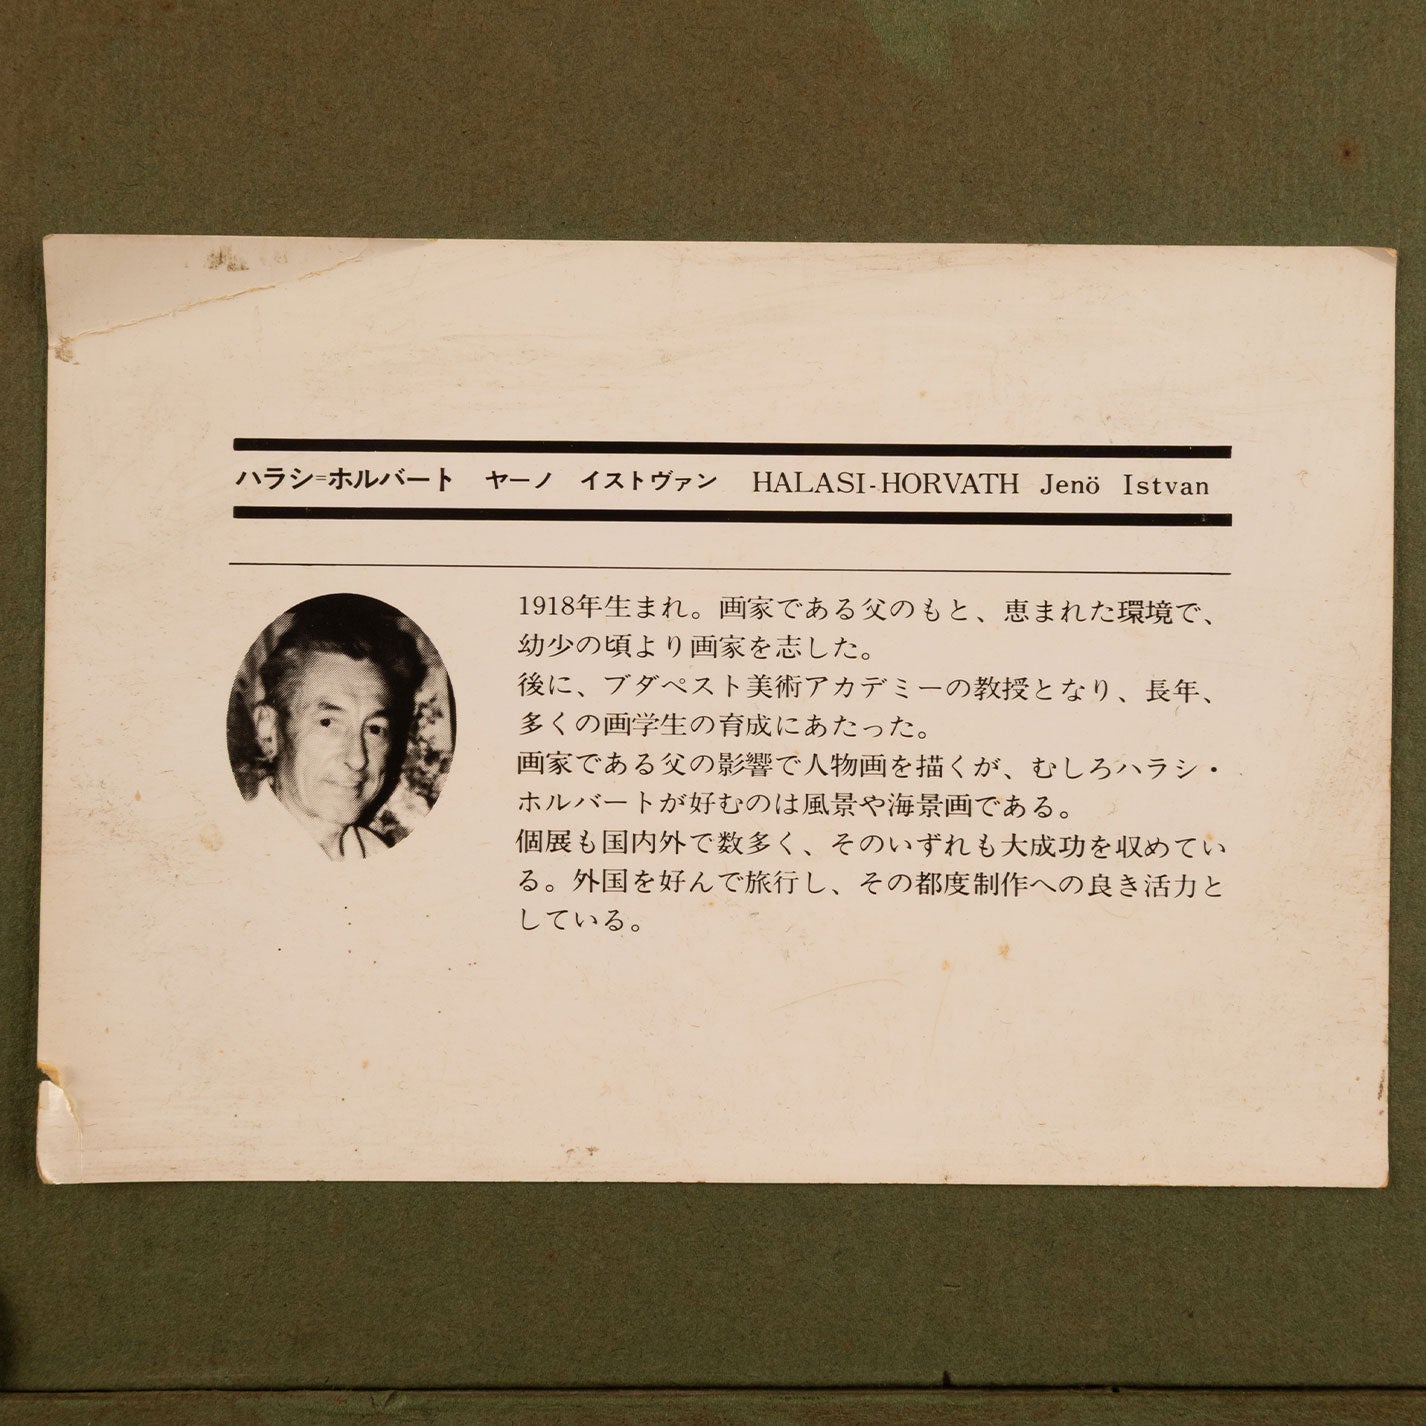 ハラシ=ホルバート　ヤーノ　イストヴァン　HALASI-HORVATH Jenö Istvan
1918年生まれ。画家である父のもと、恵まれた環境で、
幼少の頃より画家を志した。
後に、ブダペスト美術アカデミーの教授となり、長年、
多くの画学生の育成にあたった。
画家である父の影響で人物画を描くが、むしろハラシ・
ホルバートが好むのは風景や海景画である。
個展も国内外で数多く、そのいずれも大成功を収めてい
る。外国を好んで旅行し、その都度制作への良き活力と
している。